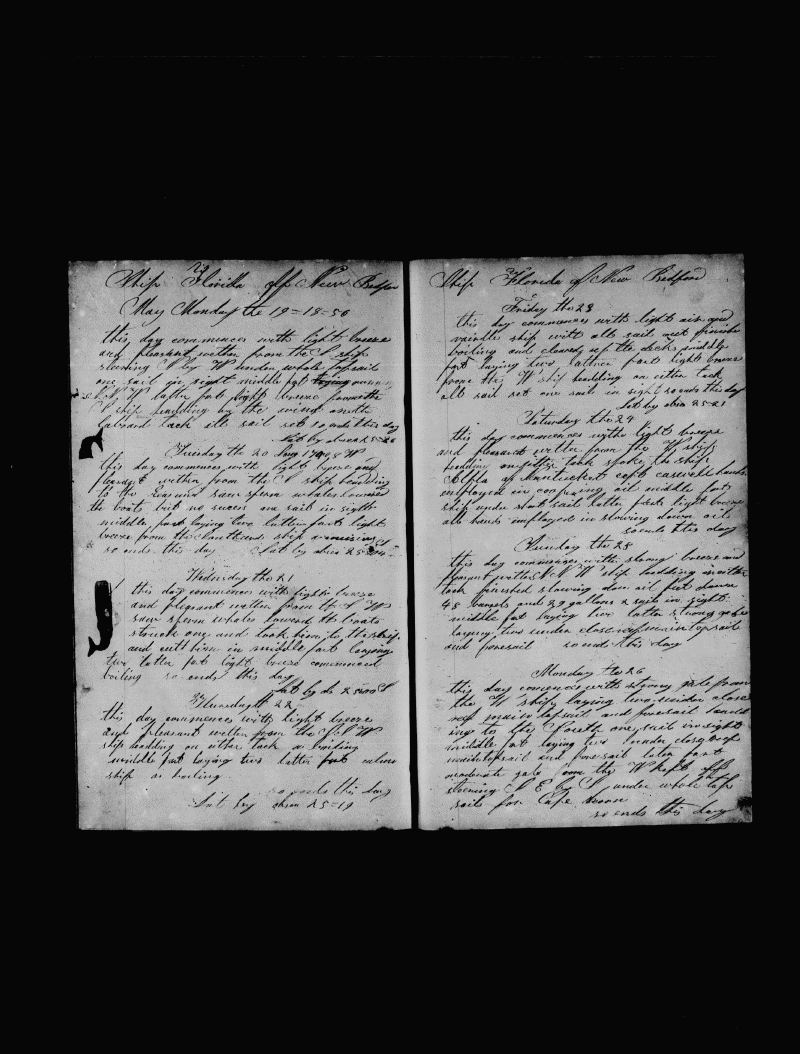 Ship Florida off New Bedford
May Monday the 19 = 18=50
this day commences with light breeze
and pleasant wether from the S ship
stearing by W under whole topsails
one sail in sight middle part
W latter part light breeze from the
S ship heading by the wind on the
labord tack all sail set so ends this day
Lat by
Tuesday the 20
this day commences with light breeze and
pleasant wether from the S ship heading
to the saw sperm whales lowered
the boats but no sucess one sail in sigth
middle part laying two latter part light
breeze from the Southard ship
so ends this day Lat by
Wednesday the 21
this day commences with light breeze
and pleasant wether from the S W
saw sperm whales lowered the boats
struck one and took him to the ship
and cutt him in middle part laying
two latter part light breeze commenced
boiling so ends this day
Lat by
Thursday 22
this day commences with light breeze
and pleasant wether from the W
ship heading on other tack a boiling
middle part laying two latter part
ship a boiling
so ends this day
Lat by obser 25=19
Ship Florida of New Bedford
Friday the 23
this day commences with light air and
ship with all sail out finished
boiling and cleared of the deck middle
part laying two latter part light breeze
from the W ship heading on either tack
all sail set one sail in sight so ends this day
Lat by obser 25=21
Saturday the 24
this day commences with light breeze
and pleasant wether from the W ship
heading on either tack spoke the ship
Alpha of Nantuckett capt hands
employed in oil middle part
ship under short sail latter part light breeze
all hands employed in stowing down oil
so ends this day
Sunday the 25
this day commences with strong breeze and
pleasant wether N W ship heading on either
tack finished stowing down oil put down
45 barrels and 29 gallons a sail in sight
middle part laying two latter strong gale
laying two under close reef main topsail
and foresail so ends this day
Monday the 26
this day commences with strong gale from
the W ship laying two under close
reef main topsail and foresail
ing to the South one sail in sight
middle part laying two under close reefs
maintopsail and foresail later part
moderate gale from the W kept off
stearing S E by S under whole top
sails for Cape
so ends this day